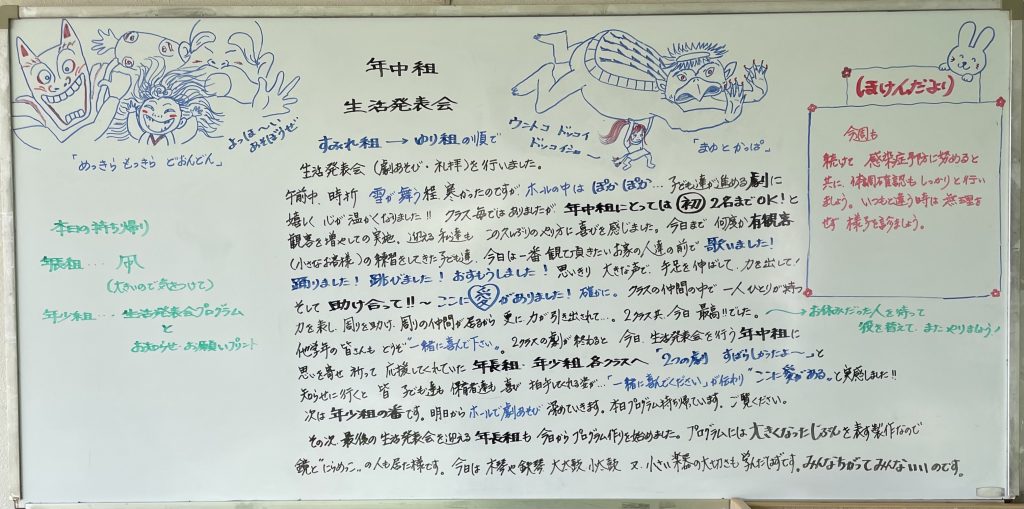 年中組
生活発表会
よっほ〜い
あそぼうぜ
「めっきら もっきら どおんどん」
ウントコ ドッコイ
ドッコイショ〜
「まゆとかっぱ」
ほけんだより
今週も
続けて 感染症予防に努めると
共に、体調確認もしっかりと行い
ましょう。いつもと違う時は 無理を
せず 様子を診ましょう。
本日の持ち帰り
年長組・・・凧
(大きいので気をつけて)
年少組・・・生活発表会プログラム
と
お知らせ・お願いプリント
すみれ組 → ゆり組 の順で
生活発表会 (劇あそび・礼拝) を行いました。
午前中、時折 雪が舞う程 寒かったのですが ホールの中は ぽかぽか… 子ども達が進める劇に
嬉しく 心が温かくなりました!! クラス毎ではありましたが 年中組にとっては 初 2名までOK!と
観客を増やしての実施、迎える私達も この久しぶりのやり方に喜びを感じました。今日まで 何度か有観客
(小さなお客様)の練習をしてきた子ども達、今日は一番 観て頂きたいお家の人達の前で 歌いました!
踊りました! 跳びました! おすもうしました! 思いきり 大きな声で、手足を伸ばして、力を出して!
そして 助け合って!!〜 ここに 愛 がありました! 確かに。 クラスの仲間の中で 一人ひとりが持つ
力を表し 周りを助け、周りの仲間が居るから 更に力が引き出されて…。2クラス共、今日 最高!!でした。
→お休みだった人を待って
役を替えて、また やりましょう!
他学年の皆さんも どうぞ "一緒に喜んで下さい"。 2クラスの劇が終わると 今日、生活発表会を行う 年中組に
思いを寄せ 祈って 応援してくれていた 年長組・年少組 各クラスへ "2つの劇 すばらしかったよ〜" と
知らせに行くと 皆 子ども達も 保育者達も 喜び 拍手してくれる姿が… "一緒に喜んでください" が伝わり "ここに愛がある。と実感しました!!
次は 年少組の番です。明日から ホールで劇あそび 深めていきます。本日プログラム持ち帰っています。ご覧ください。
その次 最後の生活発表会を迎える 年長組も 今日からプログラム作りを始めました。プログラムには 大きくなったじぶんを表す製作なので
鏡と"にらめっこ"の人も居た様です。今日は 木琴や鉄琴 大太鼓 小太鼓 又、小さい楽器の大切さも 学んだはずです。みんなちがってみんないいのです。